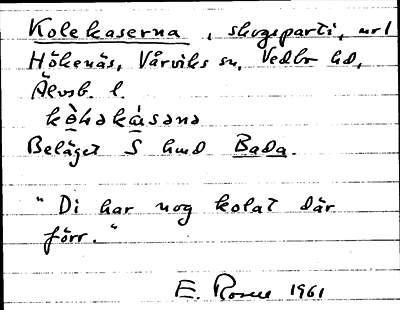 Kolekaserna, skogsparti, nr 1
Hökenäs, Vårviks sn, Vedbo hd,
Älvsb. l.
kòləkásənə
Beläget S hmd Bada.
"Di har nog kolat där
förr."
E. Rosell 1961